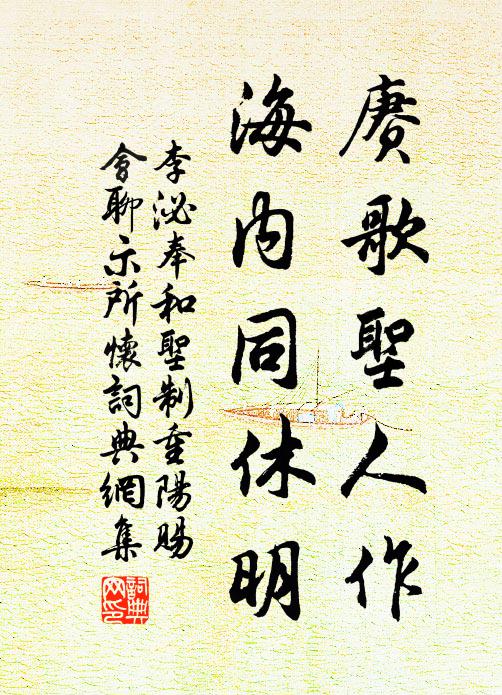 賡歌聖人作
海内同休明
李泌奉和聖制重陽賜
會聊示所懷詞典網集
詞典
網印